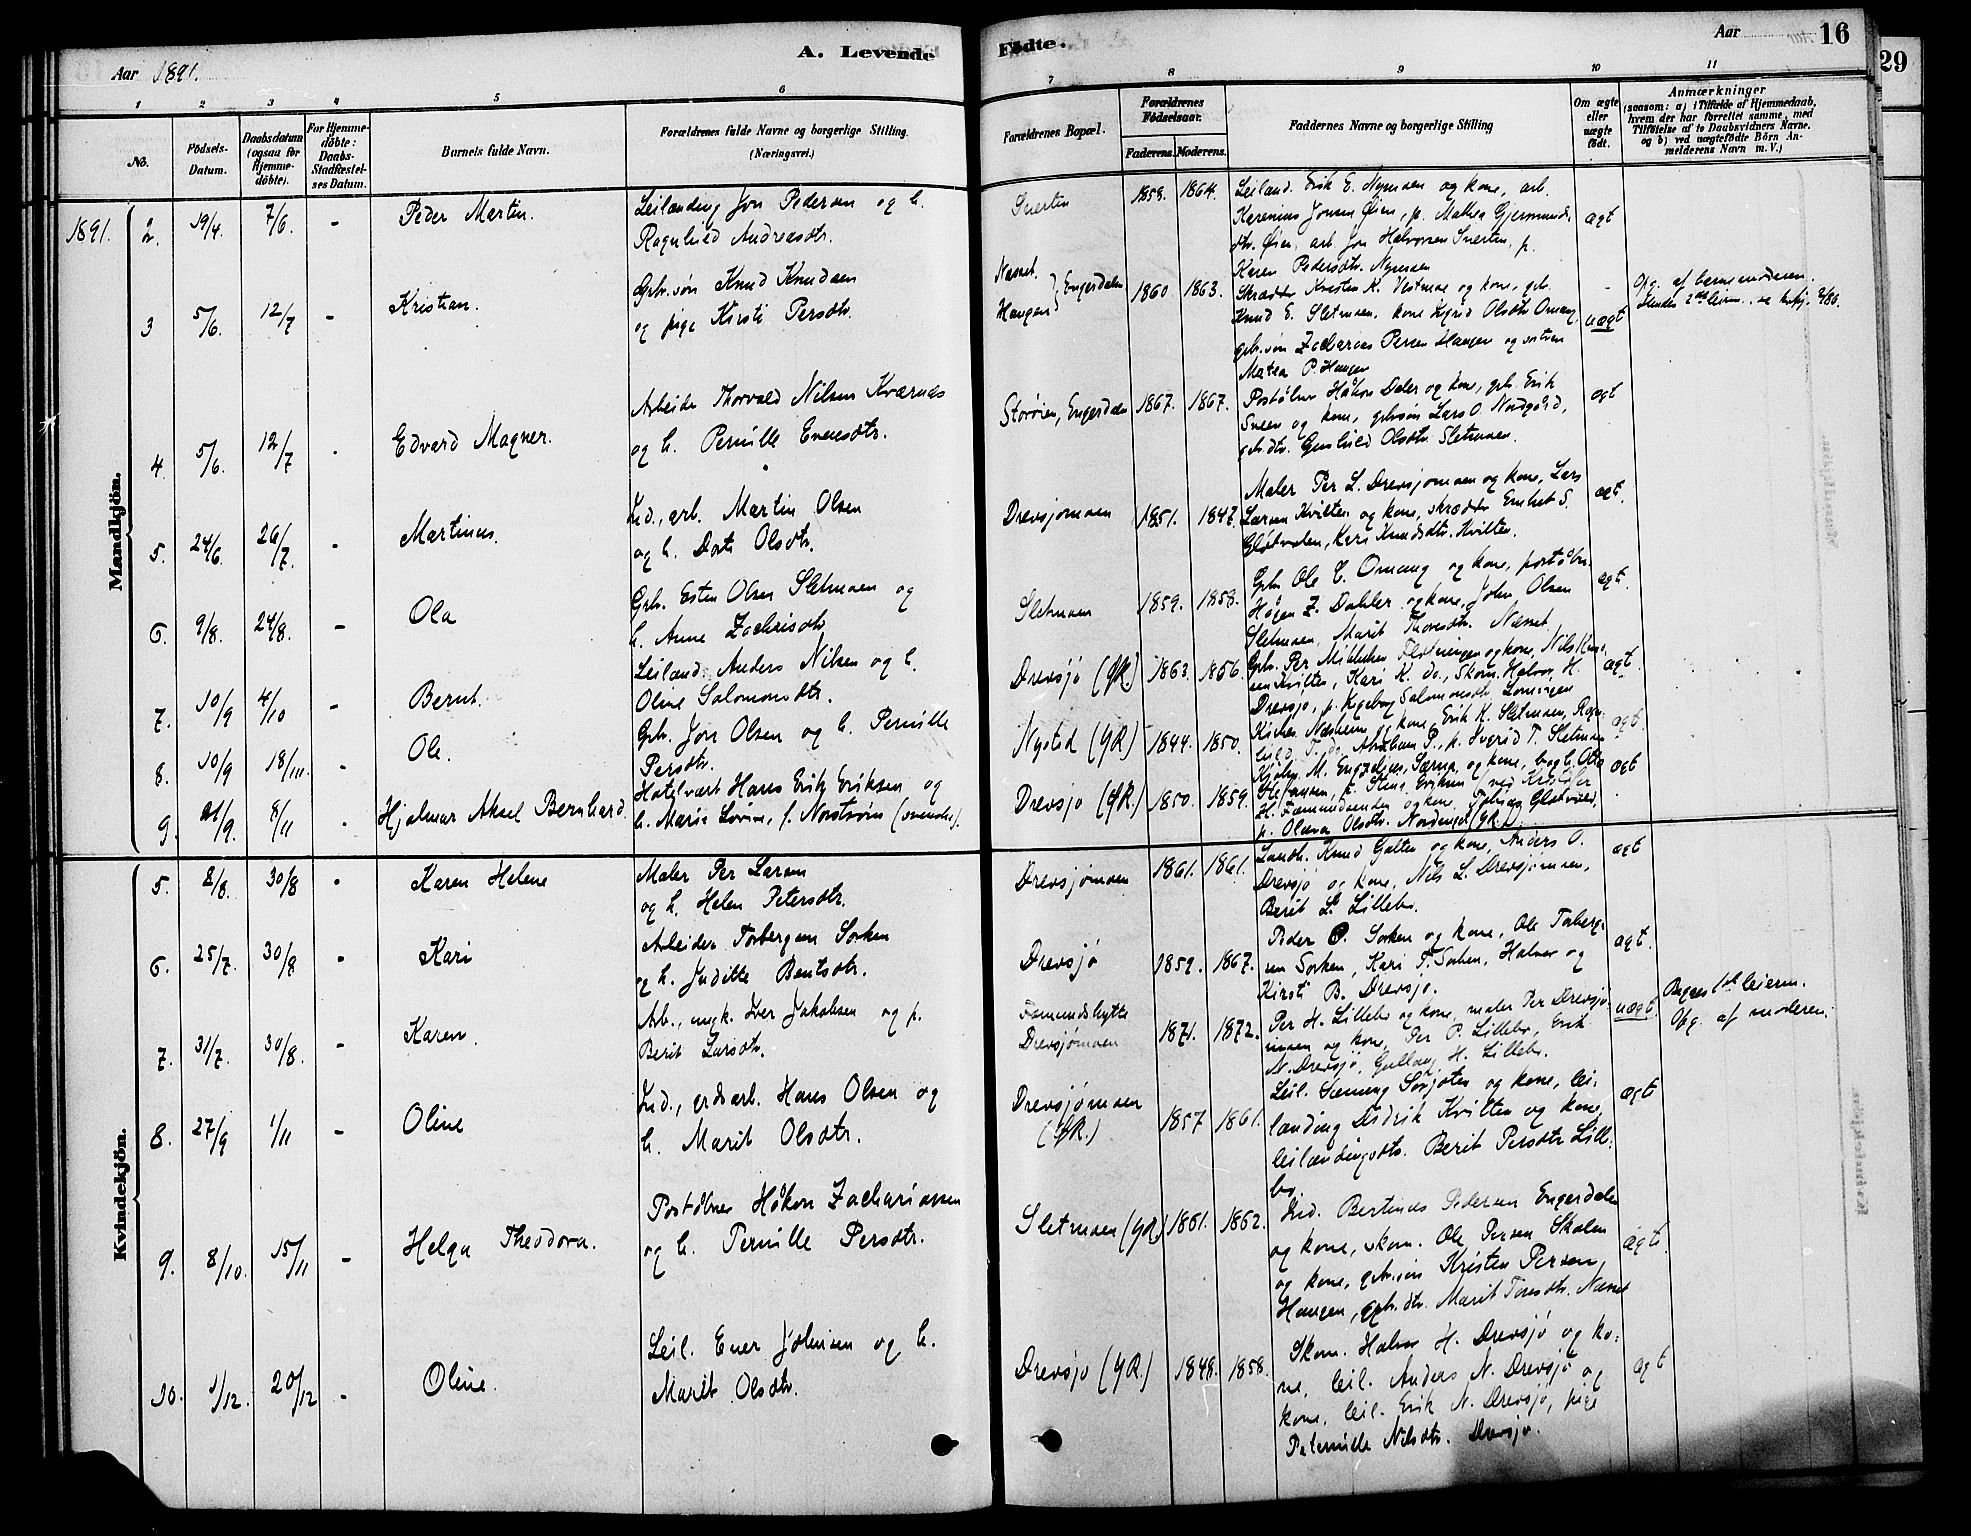 Aar 1891.
A. Levende
Fødte.
Aar
16
29
1 2 3 4 5 6
7 8 9 10 11
No.
Fødsels-
Datum.
Daabsdatum
(ogsaa for
Hjemme-
døbte).
For Hjemme-
døbte:
Daabs-
Stadfæstel-
ses Datum.
Barnets fulde Navn.
Forældrenes fulde Navne og borgerlige Stilling.
(Næringsvei.)
Forældrenes Bopæl.
Forældrenes
Fødselsaar.
Faderens. Moderens.
Faddernes Navne og borgerlige Stilling
Om ægte
eller
uægte
født.
Anmærkninger
(saasom: a) i Tilfælde af Hjemmedaab,
hvem der har forrettet samme, med
Tilføielse af to Daabsvidners Navne.
og b) ved uægtefødte Børn An-
melderens Navn m. V.)
Mandkjön.
1891. 2. 19/4. 7/6. - Peder Martin.
Leilænding Jon Pedersen og h.
Ragnhild Andreasdtr.
Snerten 1858. 1864.
Leiland. Erik E. Nymoen og kone, arb.
Karenius Jonsen Øien, p. Mathea Gjermunds-
dtr. Øien, arb. Jon Halvorsen Snerten, p.
Karen Pedersdtr. Nymoen
ægt
3 5/6. 12/7 - Kristian.
Gbr.søn Knud Knudsen
og pige Kirsti Persdtr.
Næsset
Haugen } Engerdalen 1860 1863.
Skrædder Kresten K. Vestmoe og kone, gbr.
Knud E. Sletmoen, kone Ingrid Olsdtr Omang,
gbr.søn Zacharias Persen Haugen og søsteren
Matea P. Haugen
uægt
Opg. af barnemoderen.
4. 5/6. 12/7 - Edvard Magner.
Arbeider Thorvald Nilsen Kværnes
og h. Pernille Evensdtr.
Storøien, Engerdalen 1867. 1867.
Postålner Håkon Daler og kone, gbr. Erik
Sveen og kone, gbrsøn Lars O. Nordgård,
gbr.dtr. Gunhild Olsdtr. Sletmoen.
ægt
5. 24/6. 26/7. - Martinus.
Ind., arb. Martin Olsen
og h. Dorte Olsdtr.
Drevsjømoen 1851. 1847.
Maler Per L. Drevsjømoen og kone, Lars
Larsen Kvilten og kone, skrædder Embret S.
Gløtvolen, Kari Knudsdtr. Kvilten.
ægt.
6. 9/8. 24/8. - Ola
Gbr. Esten Olsen Sletmoen og
h. Anne Zachrisdtr.
Sletmoen 1859. 1858.
Gbr. Ole E. Omang og kone, poståbn.
Høgen Z. Dahler og kone, John Olsen
Sletmoen, Marit Thoresdtr. Næsset
ægt.
7. 10/9 4/10 - Bernt.
Leiland. Anders Nilsen og h.
Oline Salomonsdtr.
Drevsjø (YR) 1863. 1856.
Gbr. Per Mikkelsen Flotningen og kone, Nils Knud-
sen Kvilten, Kari K. do., Skom. Halvor H.
Drevsjø, p. Ingeborg Salomonsdtr. Lomvigen
ægt.
8. 10/9 18/11. - Ole.
Gbr. Jon Olsen og h. Pernille
Persdtr.
Nysted (YR) 1844. 1850.
Erik K. Sletmoen, Ragn-
hild T. do., Abraham P., p. Ingrid T. Sletmoen
ægt.
9. 21/9. 8/11 . Hjalmar Aksel Bernhard.
Hotelvært Hans Erik Eriksen og
h. Maria Lovise, f. Norström (svenske).
Drevsjø (YR.) 1850. 1859.
Kjøbm. M. Engzelius, Særna, og kone,
H. Femundsenden og kone, Tobias Gløtvold,
p. Olava Olsdtr. Nordenget (YR.).
ægt
Kvindekjön.
5. 8/8. 30/8 - Karen Helene
Maler Per Larsen
og h. Helen Petersdtr.
Drevsjømoen 1861. 1861.
Landh. Knud Galten og kone, Anders O.
Drevsjø og kone, Nils L. Drevsjømoen,
Berit L. Lillebo.
ægt
6. 25/7. 30/8 - Kari
Arbeider Torbergsen Sorken
og h. Juditte Bentsdtr.
Drevsjø 1859. 1867.
Peder P. Sorken og kone, Ole Torberg-
sen Sorken, Kari T. Sorken, Halvor og
Kirsti B. Drevsjø.
ægt.
7. 31/7. 30/8. - Karen
Arb., ungk. Iver Jakobsen og p.
Berit Larsdtr.
Femundshytten
Drevsjømoen 1871. 1872.
Per H. Lillebo og kone, maler Per Drevsjø-
moen og kone, Per P. Lillebo, Erik
N. Drevsjø, Gulleug H. Lillebo.
uægt.
Begges 1ste leierm.
Opg. af moderen.
8. 27/9 1/11 - Oline
Ind., grdsarb. Hans Olsen og
h. Marit Olsdtr.
Drevsjømoen
(YR.) 1857 1861.
Leil. Sæming Sørjoten og kone, lei-
lænding Didrik Kvilten og kone,
leilændingsdtr. Berit Persdtr Lille-
bo.
ægt
9. 8/10. 15/11 - Helga Theodora.
Poståbner Håkon Zachariassen
og h. Pernille Persdtr.
Sletmoen (YR) 1861. 1862.
Ind. Bertinus Pedersen Engerdalen
og kone, skom. Ole Persen Skolen
og kone, gbr.søn Kristen Persen
Haugen, gbr.dtr. Marit Toresdtr. Næsset
ægt.
10. 1/12. 20/12 - Oline.
Leil. Ener Johnsen og h.
Marit Olsdtr.
Drevsjø (YR.) 1848. 1858.
Skom. Halvor H. Drevsjø og ko-
ne, leil. Anders N. Drevsjø og
kone, leil. Erik N. Drevsjø, pige
Pernille Nilsdtr. Drevsjø.
ægt